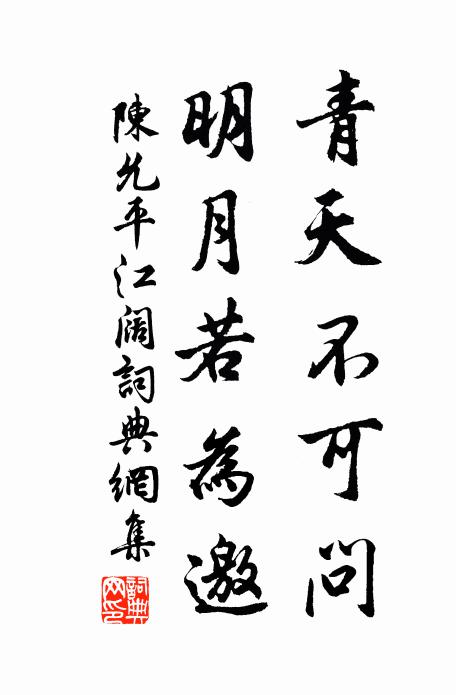 青天不可問
明月若為邀
陳允平江闊詞典網集
詞典網印